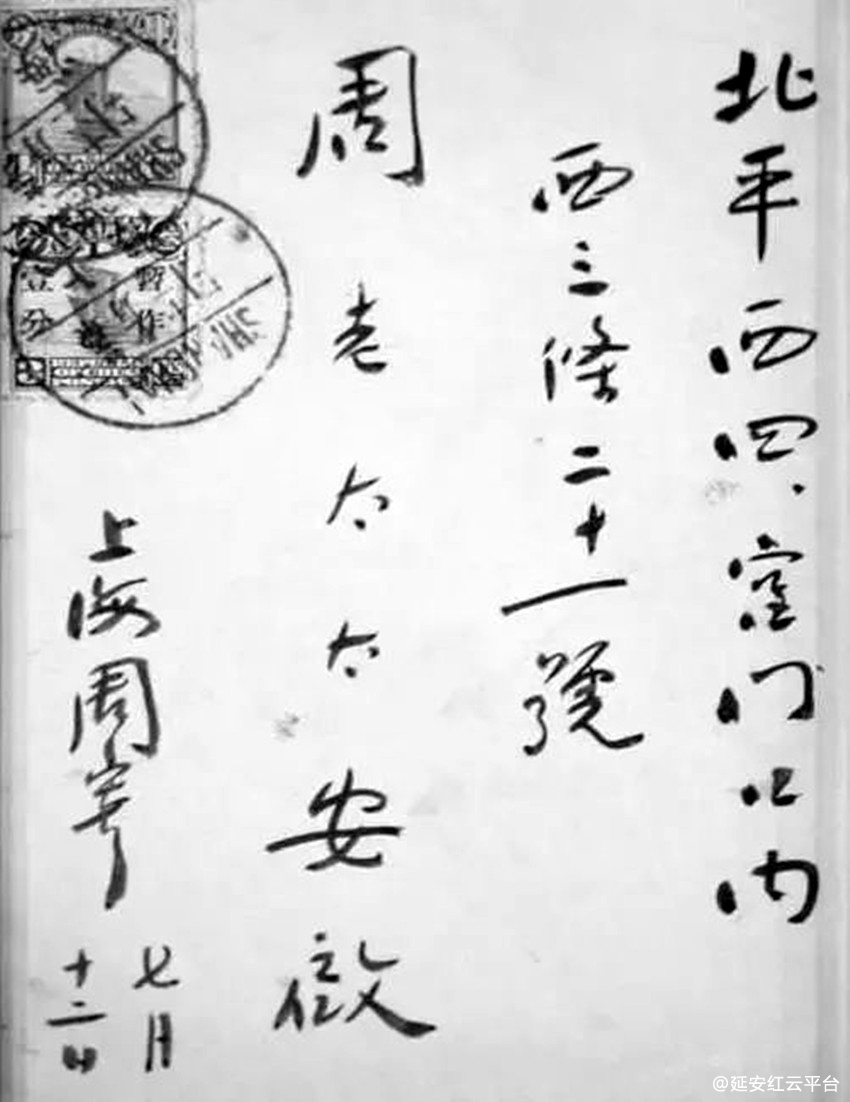 北平西四、宮門口内
西三條二十一號
周老太太安啟
上海周寄
七月
十二日
暫作
壹分
SHANGHAI
@延安红云平台